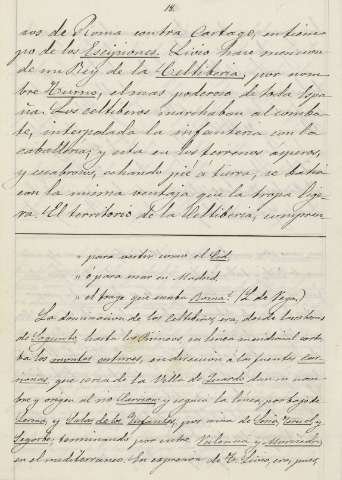 18.
avo de Roma contra Cartago, en tiem-
po de los Escipiones. Livio hace mencion
de un Rey de la Celtiberia, por nom-
bre Turno, el mas poderoso de toda Espa-
ña. Los celtiberos marchaban al comba-
te, interpolada la infanteria con la
caballeria; y esta en los terrenos ásperos,
y escabrosos, echando pié á tierra, se batia
con la misma ventaja que la tropa lije-
ra. El territorio de la Celtiberia, compren-
" para vestir como el Cid,
" ó para usar en Madrid
" el traje que usaba Roma". (L. de Vega)
La dominacion de los Celtiberos, era, desde
de Sagunto hasta los Pirineos, en linea meridional
ba los montes en direccion á las fuentes
que cerca de la Villa de Guardo dan su nom-
bre y origen al rio Carrion y seguia la linea, por bajo de
Lerma, y Salas de los Infantes, por cima de Soria, Teruel, y
Segorbe; terminando por entre Valencia y Murviedro,
en el mediterraneo. La espresion de T. Livio, era, pues,